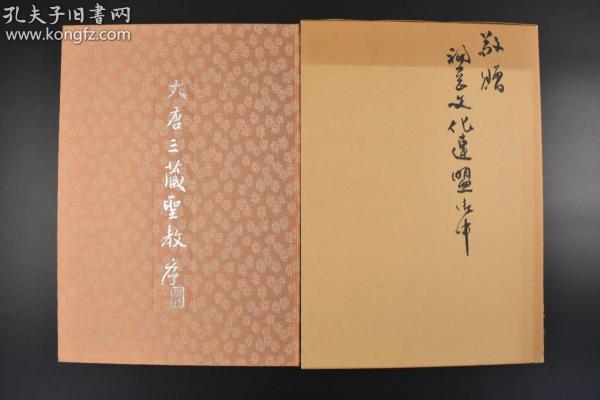 孔夫子旧书网
www.kongfz.com
大唐三蔵聖教序
敬贈
文化連盟御中